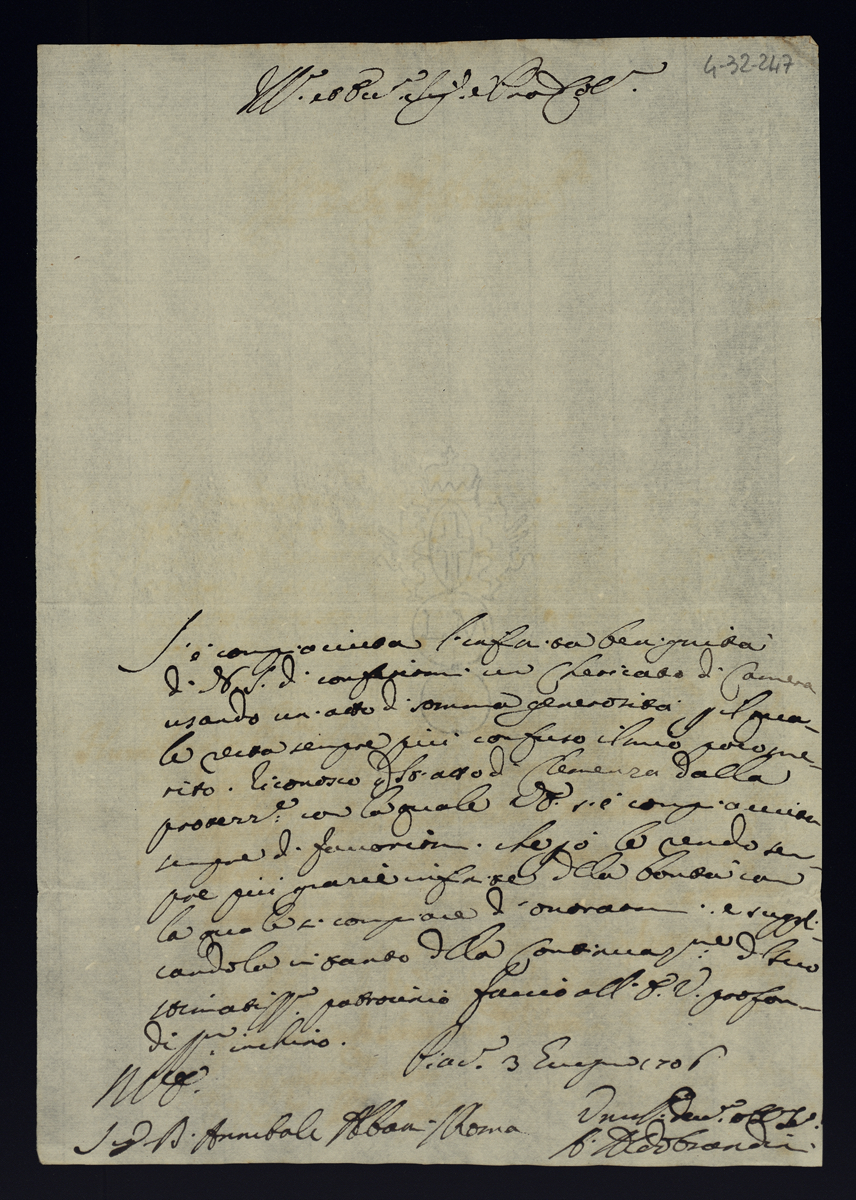 4-32-247
Ill.mo e Rev.mo Sig.r e Pron Col.mo
S'è compiaciuta l'infinita benignità
di N. S. di conferirmi un Chericato di Camera
usando un atto di somma generosità, p il qua-
le resta sempre più confuso il mio poco me-
rito. Riconosco q.sto atto di Clemenza dalla
protez.ne con la quale VS. s'è compiaciuta
sempre di favorirmi, che p ciò le rendo sem-
pre più grazie infinite della bontà con
la quale si compiace d'onorarmi, e suppli-
candola in tanto della Continuaz.ne del suo
stimatiss.mo patrocinio faccio all S. V. profon-
diss.mo inchino.
Piac.a 3 Giugno 1706
Sig D. Annibale Albani Roma
Dev.mo Obl.mo
Aldobrandini